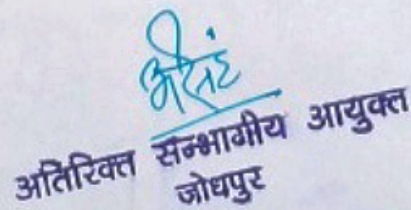 अतिरिक्त सम्भागीय आयुक्त
जोधपुर